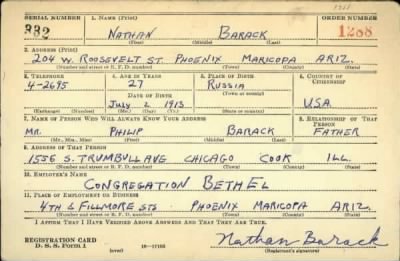 1321
SERIAL NUMBER 1. NAME (Print) ORDER NUMBER
332 NATHAN BARACK 1288
(First) (Middle) (Last)
2. ADDRESS (Print)
204 W. ROOSEVELT ST. PHOENIX MARICOPA ARIZ.
(Number and street or R. F. D. number) (Town) (County) (State)
3. TELEPHONE 4. AGE IN YEARS 5. PLACE OF BIRTH 6. COUNTRY OF CITIZENSHIP
4-2695 27 RUSSIA
DATE OF BIRTH (Town or county)
JULY 2 1913 USA
(Exchange) (No.) (Mo.) (Day) (Yr.) (State or country)
7. NAME OF PERSON WHO WILL ALWAYS KNOW YOUR ADDRESS 8. RELATIONSHIP OF THAT PERSON
MR. PHILIP BARACK FATHER
(Mr., Mrs., Miss) (First) (Middle) (Last)
9. ADDRESS OF THAT PERSON
1556 S. TRUMBULL AVE CHICAGO COOK ILL.
(Number and street or R. F. D. number) (Town) (County) (State)
10. EMPLOYER'S NAME
CONGREGATION BETHEL
11. PLACE OF EMPLOYMENT OR BUSINESS
4TH & FILLMORE STS PHOENIX MARICOPA ARIZ.
(Number and street or R. F. D. number) (Town) (County) (State)
I AFFIRM THAT I HAVE VERIFIED ABOVE ANSWERS AND THAT THEY ARE TRUE.
REGISTRATION CARD
D. S. S. Form 1 (over) 16—17105 Nathan Barack
(Registrant's signature)